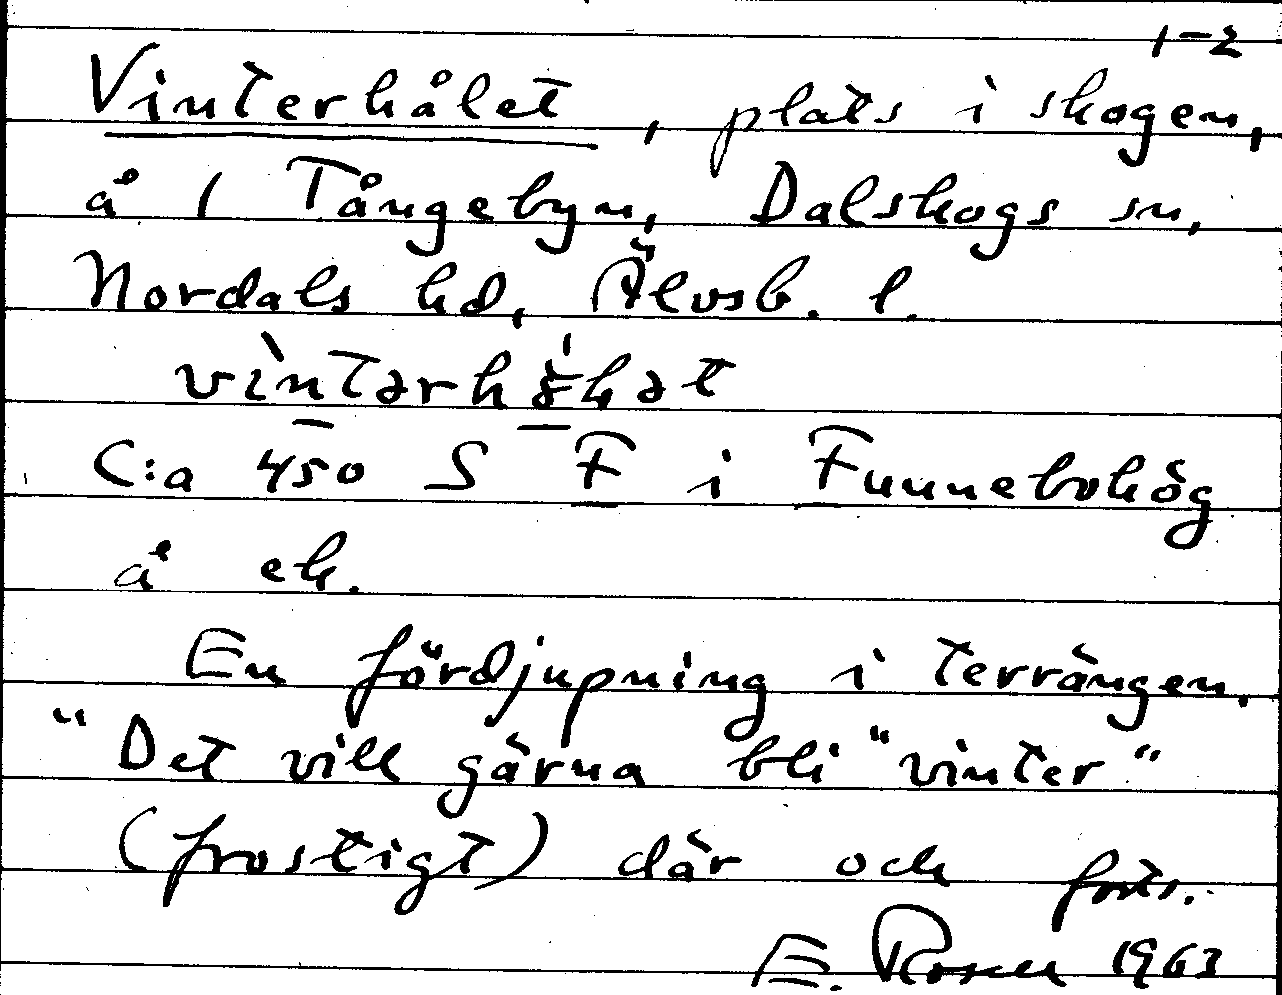 1-2
Vinterhålet, plats i skogen,
å 1 Tångebyn, Dalskogs sn,
Nordals hd, Älvsb. l.
C:a 450 S F i Funnebohög
å ek.
En fördjupning i terrängen.
"Det vill gärna bli "vinter"
(frostigt) där och forts.
E. Rosell 1963